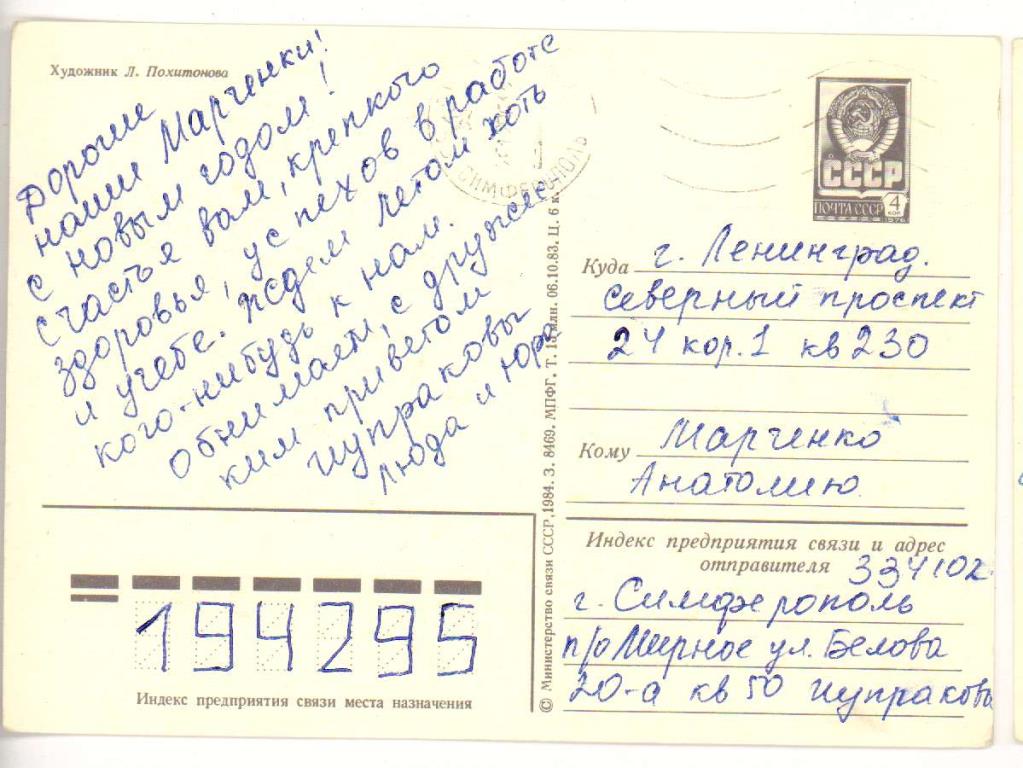 Художник Л. Похитонова
Дорогие
наши Марченки!
С новым годом!
Счастья вам, крепкого
здоровья, успехов в работе
и учебе. Ждем летом хоть
кого-нибудь к нам.
Обнимаем, с дружес-
ким приветом
Чупраковы
Люда и Юра
СИМФЕРОПОЛЬ
СССР
ПОЧТА СССР 4 КОП
1976
Куда г. Ленинград.
Северный проспект
24 кор. 1 кв 230
Кому Марченко
Анатолию
Индекс предприятия связи и адрес
отправителя 334102
г. Симферополь
п/о Мирное ул. Белова
20-а кв 50 Чупраковы
194295
Индекс предприятия связи места назначения
© Министерство связи СССР, 1984. З. 8469. МПФГ. Т. 15 млн. 06.10.83. Ц. 6 к.